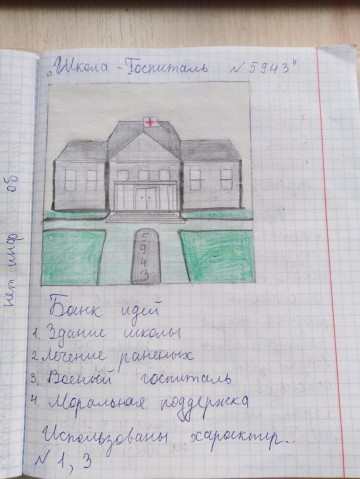 "Школа-Госпиталь №5943"
5943
нет инф об
Банк идей
1. Здание школы
2. Лечение раненых
3. Военый госпиталь
4. Моральная поддержка
Использованы характер..
№1,3